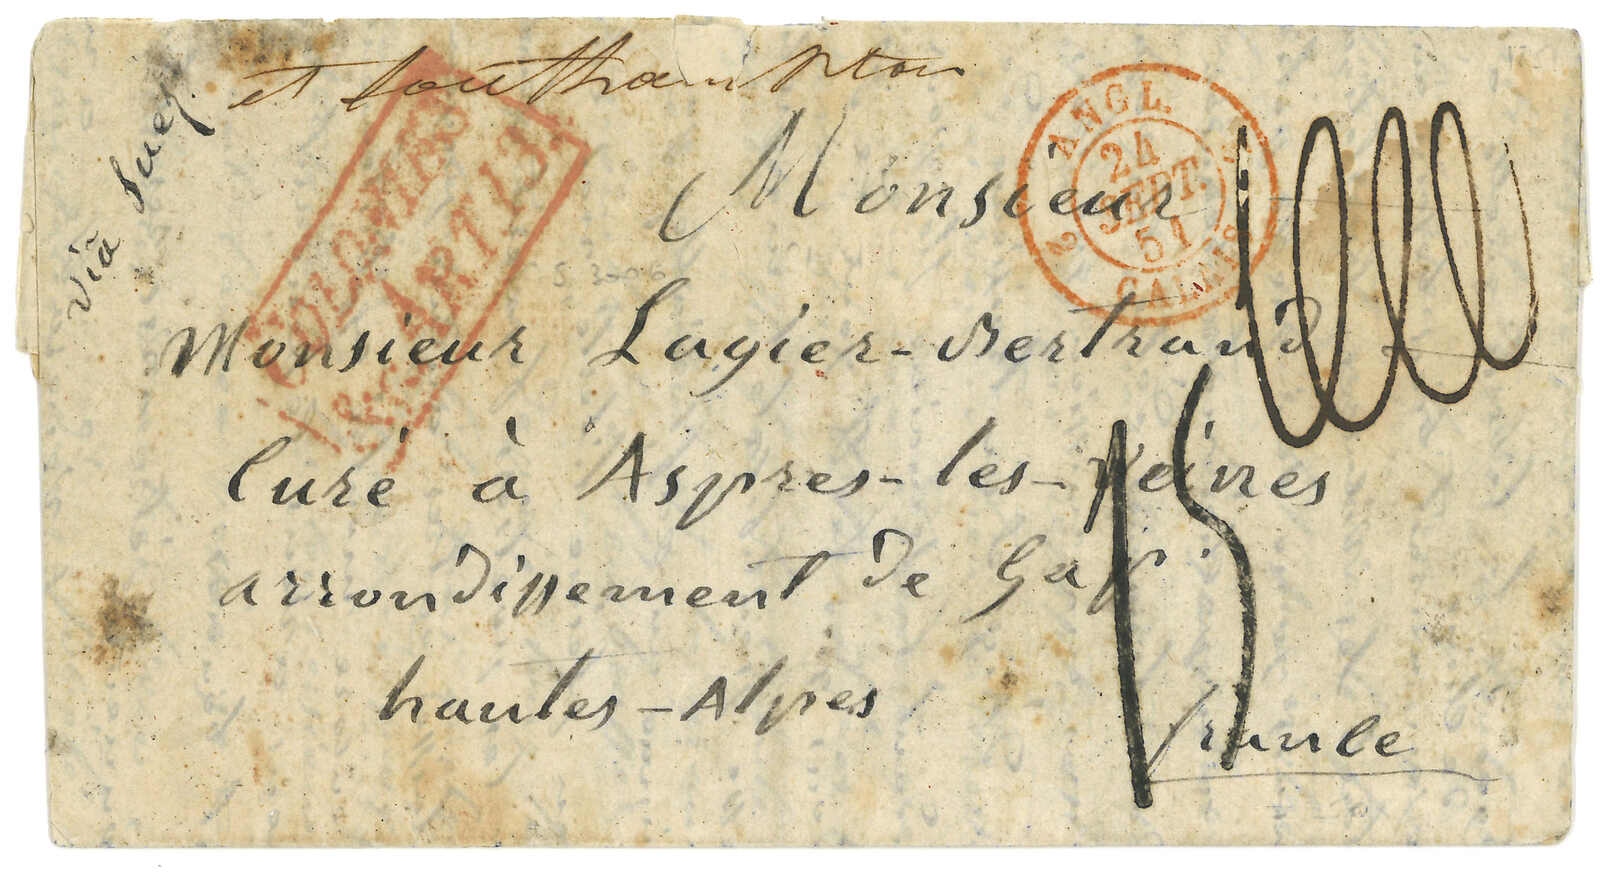 et Southampton
vià Suez
COLONIES
&c. ART. 13.
2 ANGL. CALAIS
24
SEPT.
51
Monsieur
Monsieur Lagier-Bertrand
Curé à Aspres-les-Veines
arrondissement de Gap.
hautes-Alpes
france
15